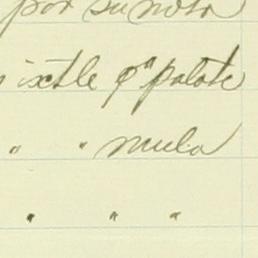 por su nota
ixtle pa palote
" " mula
" " "